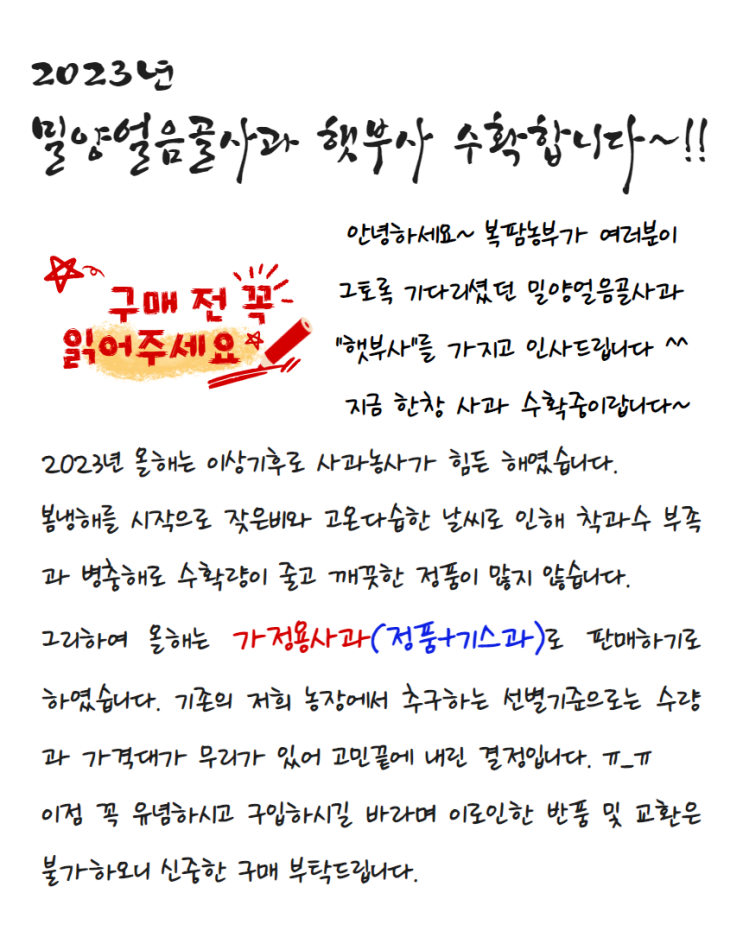 2023년
밀양얼음골사과 햇부사 수확합니다~!!
구매 전 꼭
읽어주세요
안녕하세요~ 복팜농부가 여러분이
그토록 기다리셨던 밀양얼음골사과
"햇부사"를 가지고 인사드립니다 ^^
지금 한창 사과 수확중이랍니다~
2023년 올해는 이상기후로 사과농사가 힘든 해였습니다.
봄냉해를 시작으로 잦은비와 고온다습한 날씨로 인해 착과수 부족
과 병충해로 수확량이 줄고 깨끗한 정품이 많지 않습니다.
그리하여 올해는 가정용사과(정품+기스과)로 판매하기로
하였습니다. 기존의 저희 농장에서 추구하는 선별기준으로는 수량
과 가격대가 무리가 있어 고민끝에 내린 결정입니다. ㅠ_ㅠ
이점 꼭 유념하시고 구입하시길 바라며 이로인한 반품 및 교환은
불가하오니 신중한 구매 부탁드립니다.